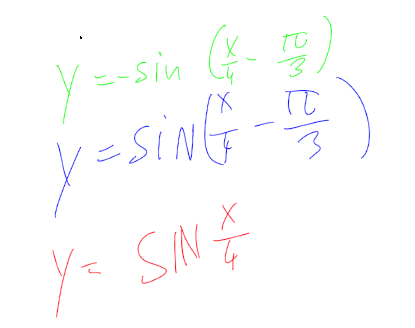 y = -sin (x/4 - π/3)
y = SIN (x/4 - π/3)
y = SIN x/4